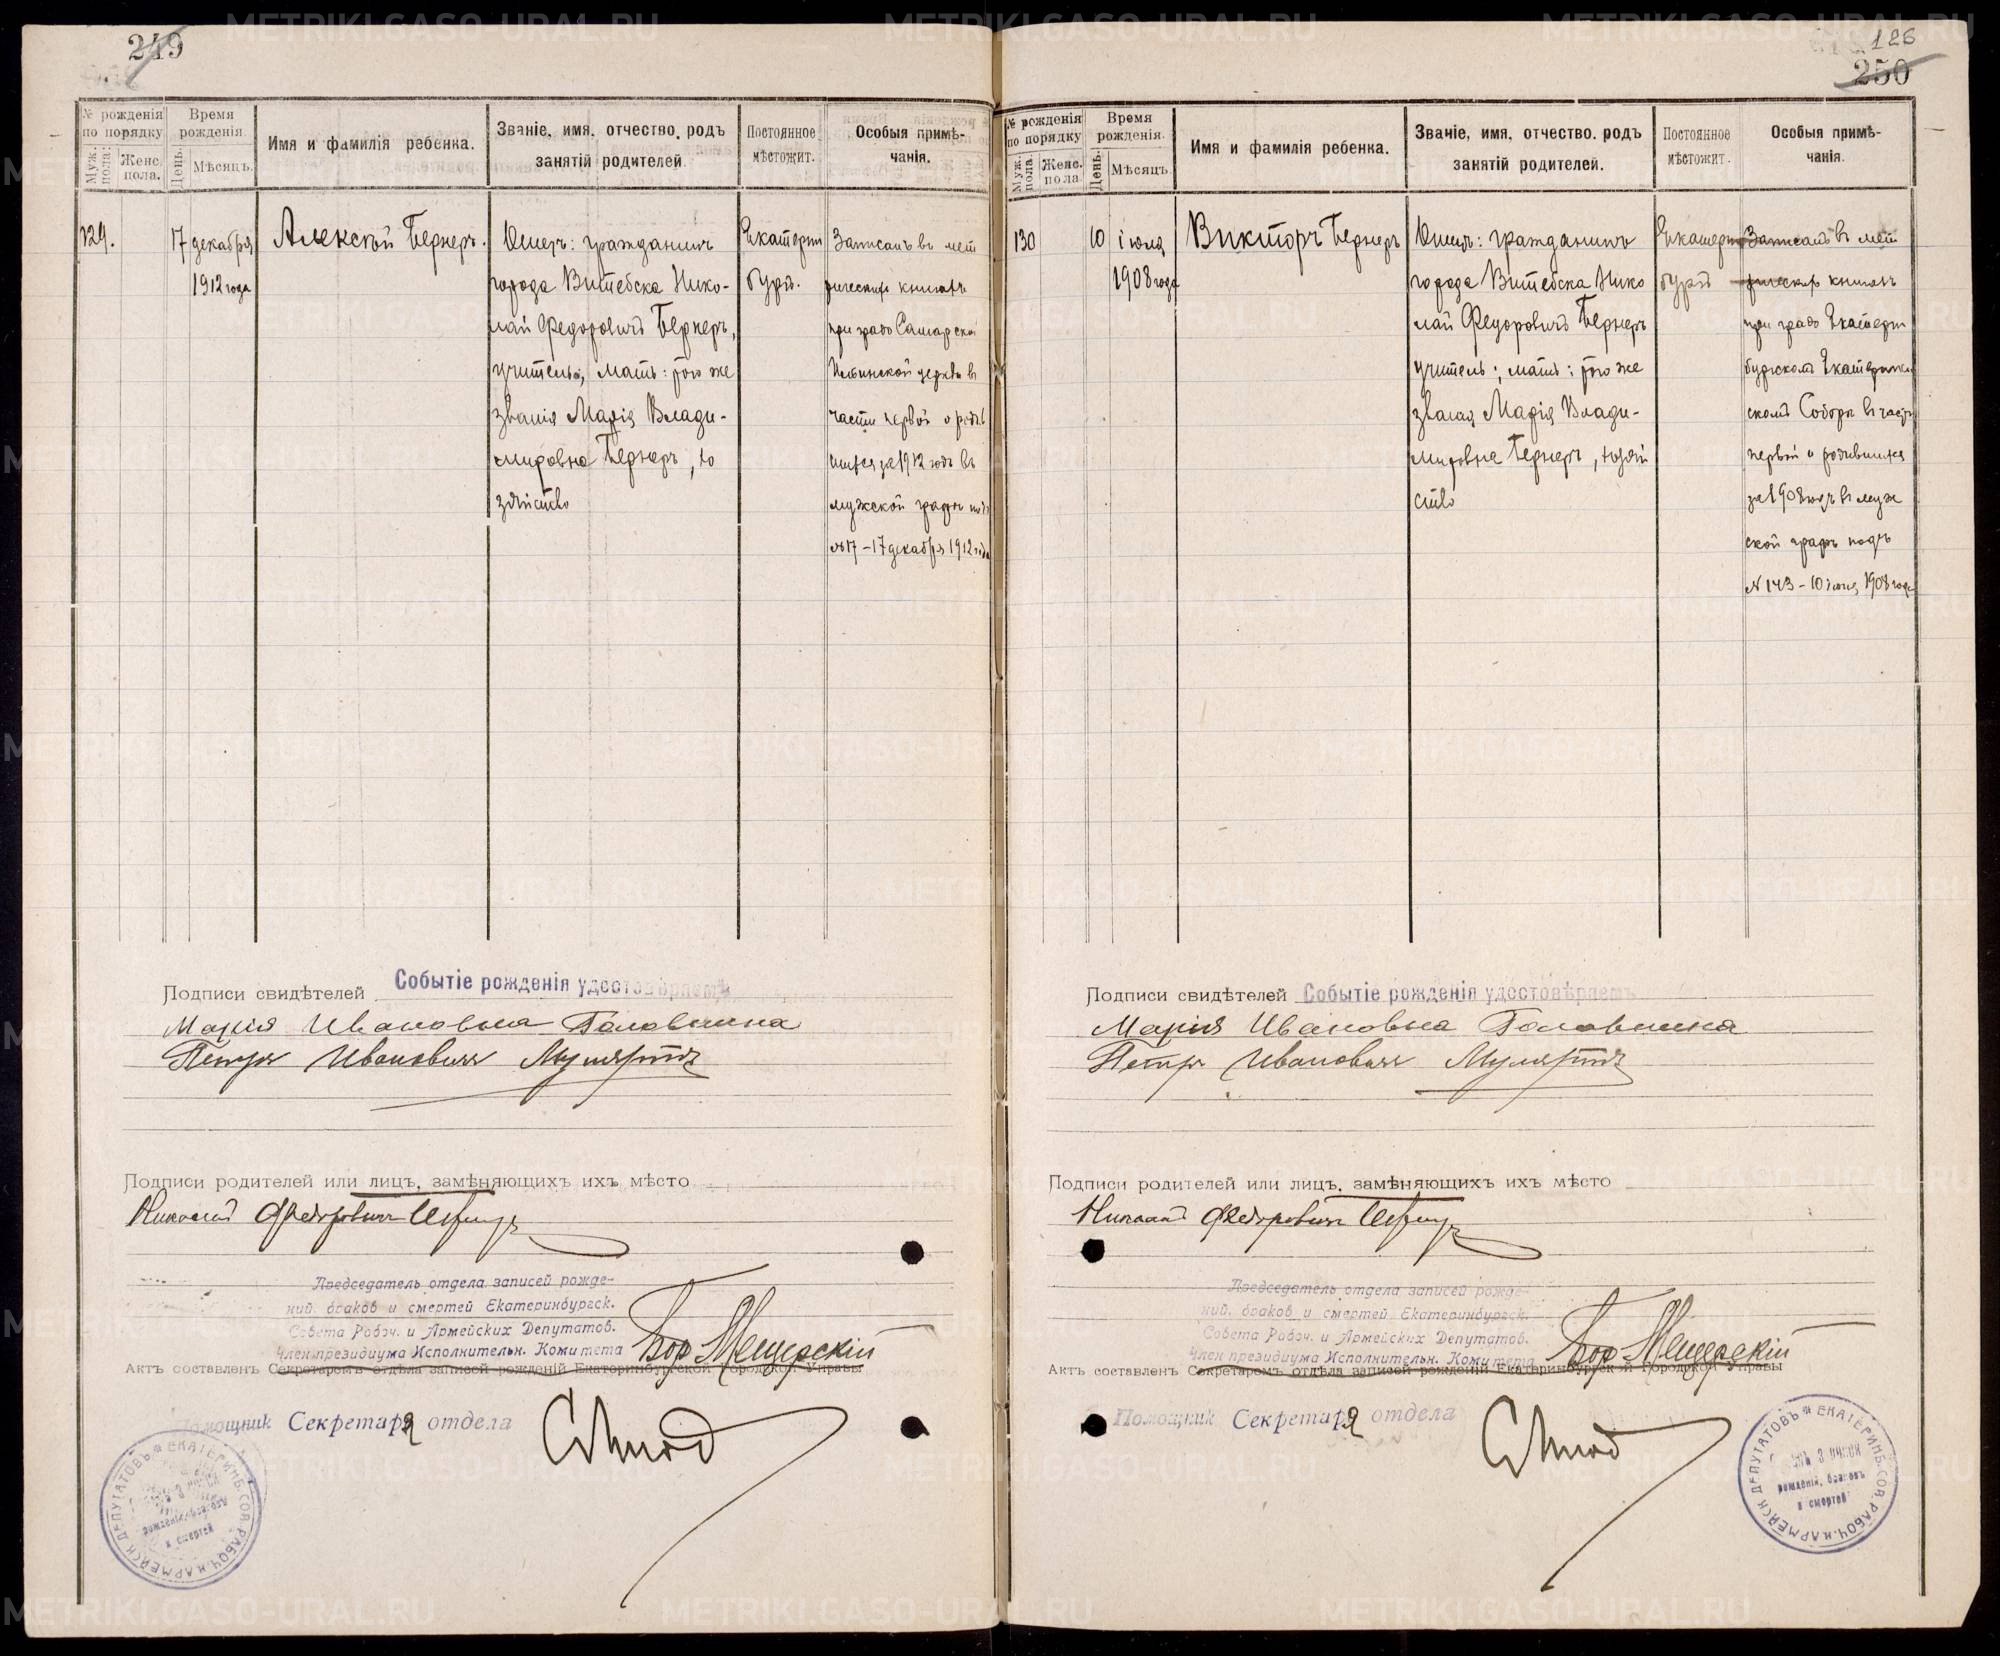 249
№ рожденія по порядку
Время рожденія.
Имя и фамилія ребенка.
Званіе, имя, отчество, родъ
занятій родителей.
Постоянное
мѣстожит.
Особыя примѣ-
чанія.
Муж. пола:
Женс. пола.
День.
Мѣсяцъ.
129.
17 декабря
1912 года
Алексѣй Бернеръ.
Отецъ: гражданинъ
города Витебска Нико-
лай Федоровичъ Бернеръ,
учитель, мать: того же
званія Марія Влади-
мировна Бернеръ, хо
зяйство
Екатерин
бургъ.
Записанъ въ мет
рическихъ книгахъ
при градо Самарской
Ильинской церкви въ
части первой о родив
шихся за 1912 годъ въ
мужской графѣ подъ
№17 - 17 декабря 1912 года
Подписи свидѣтелей Событіе рожденія удостовѣряемъ
Марія Ивановна Головкина
Петръ Ивановичъ
Подписи родителей или лицъ, замѣняющихъ ихъ мѣсто
Николай Федоровичъ Бернеръ
Председатель отдела записей рожде-
ний, браков и смертей Екатеринбургск.
Совета Рабоч. и Армейских Депутатов.
Член президиума Исполнительн. Комитета
Бор Мещерскій
Актъ составленъ Секретаремъ отдѣла записей рожденій Екатеринбургской Городской Управы
Помощник Секретаря отдела
ЕКАТЕРИНБ. СОВ. РАБОЧ. И АРМЕЙСК. ДЕПУТАТОВЪ
рожденій, браковъ
и смертей
126
250
№ рожденія по порядку
Время рожденія.
Имя и фамилія ребенка.
Званіе, имя, отчество, родъ
занятій родителей.
Постоянное
мѣстожит.
Особыя примѣ-
чанія.
Муж. пола.
Женс. пола
День.
Мѣсяцъ.
130
10 іюля
1908 года
Викторъ Бернеръ
Отецъ: гражданинъ
города Витебска Нико
лай Федоровичъ Бернеръ
учитель; мать: того же
званія Марія Влади-
мировна Бернеръ, хозяй
ство
Екатерин
бургъ
Записанъ въ мет
рическихъ книгахъ
при градо Екатерин
бургскомъ Екатеринин
скомъ Соборѣ въ части
первой о родившихся
за 1908 годъ въ муж
ской графѣ подъ
№ 143 - 10 іюля 1908 года
Подписи свидѣтелей Событіе рожденія удостовѣряемъ
Марія Ивановна Головкина
Петръ Ивановичъ
Подписи родителей или лицъ, замѣняющихъ ихъ мѣсто
Николай Федоровичъ Бернеръ
Председатель отдела записей рожде-
ний, браков и смертей Екатеринбургск.
Совета Рабоч. и Армейских Депутатов.
Член президиума Исполнительн. Комитета
Бор Мещерскій
Актъ составленъ Секретаремъ отдѣла записей рожденій Екатеринбургской Городской Управы
Помощник Секретаря отдела
ЕКАТЕРИНБ. СОВ. РАБОЧ. И АРМЕЙСК. ДЕПУТАТОВЪ
рожденій, браковъ
и смертей
METRIKI.GASO-URAL.RU